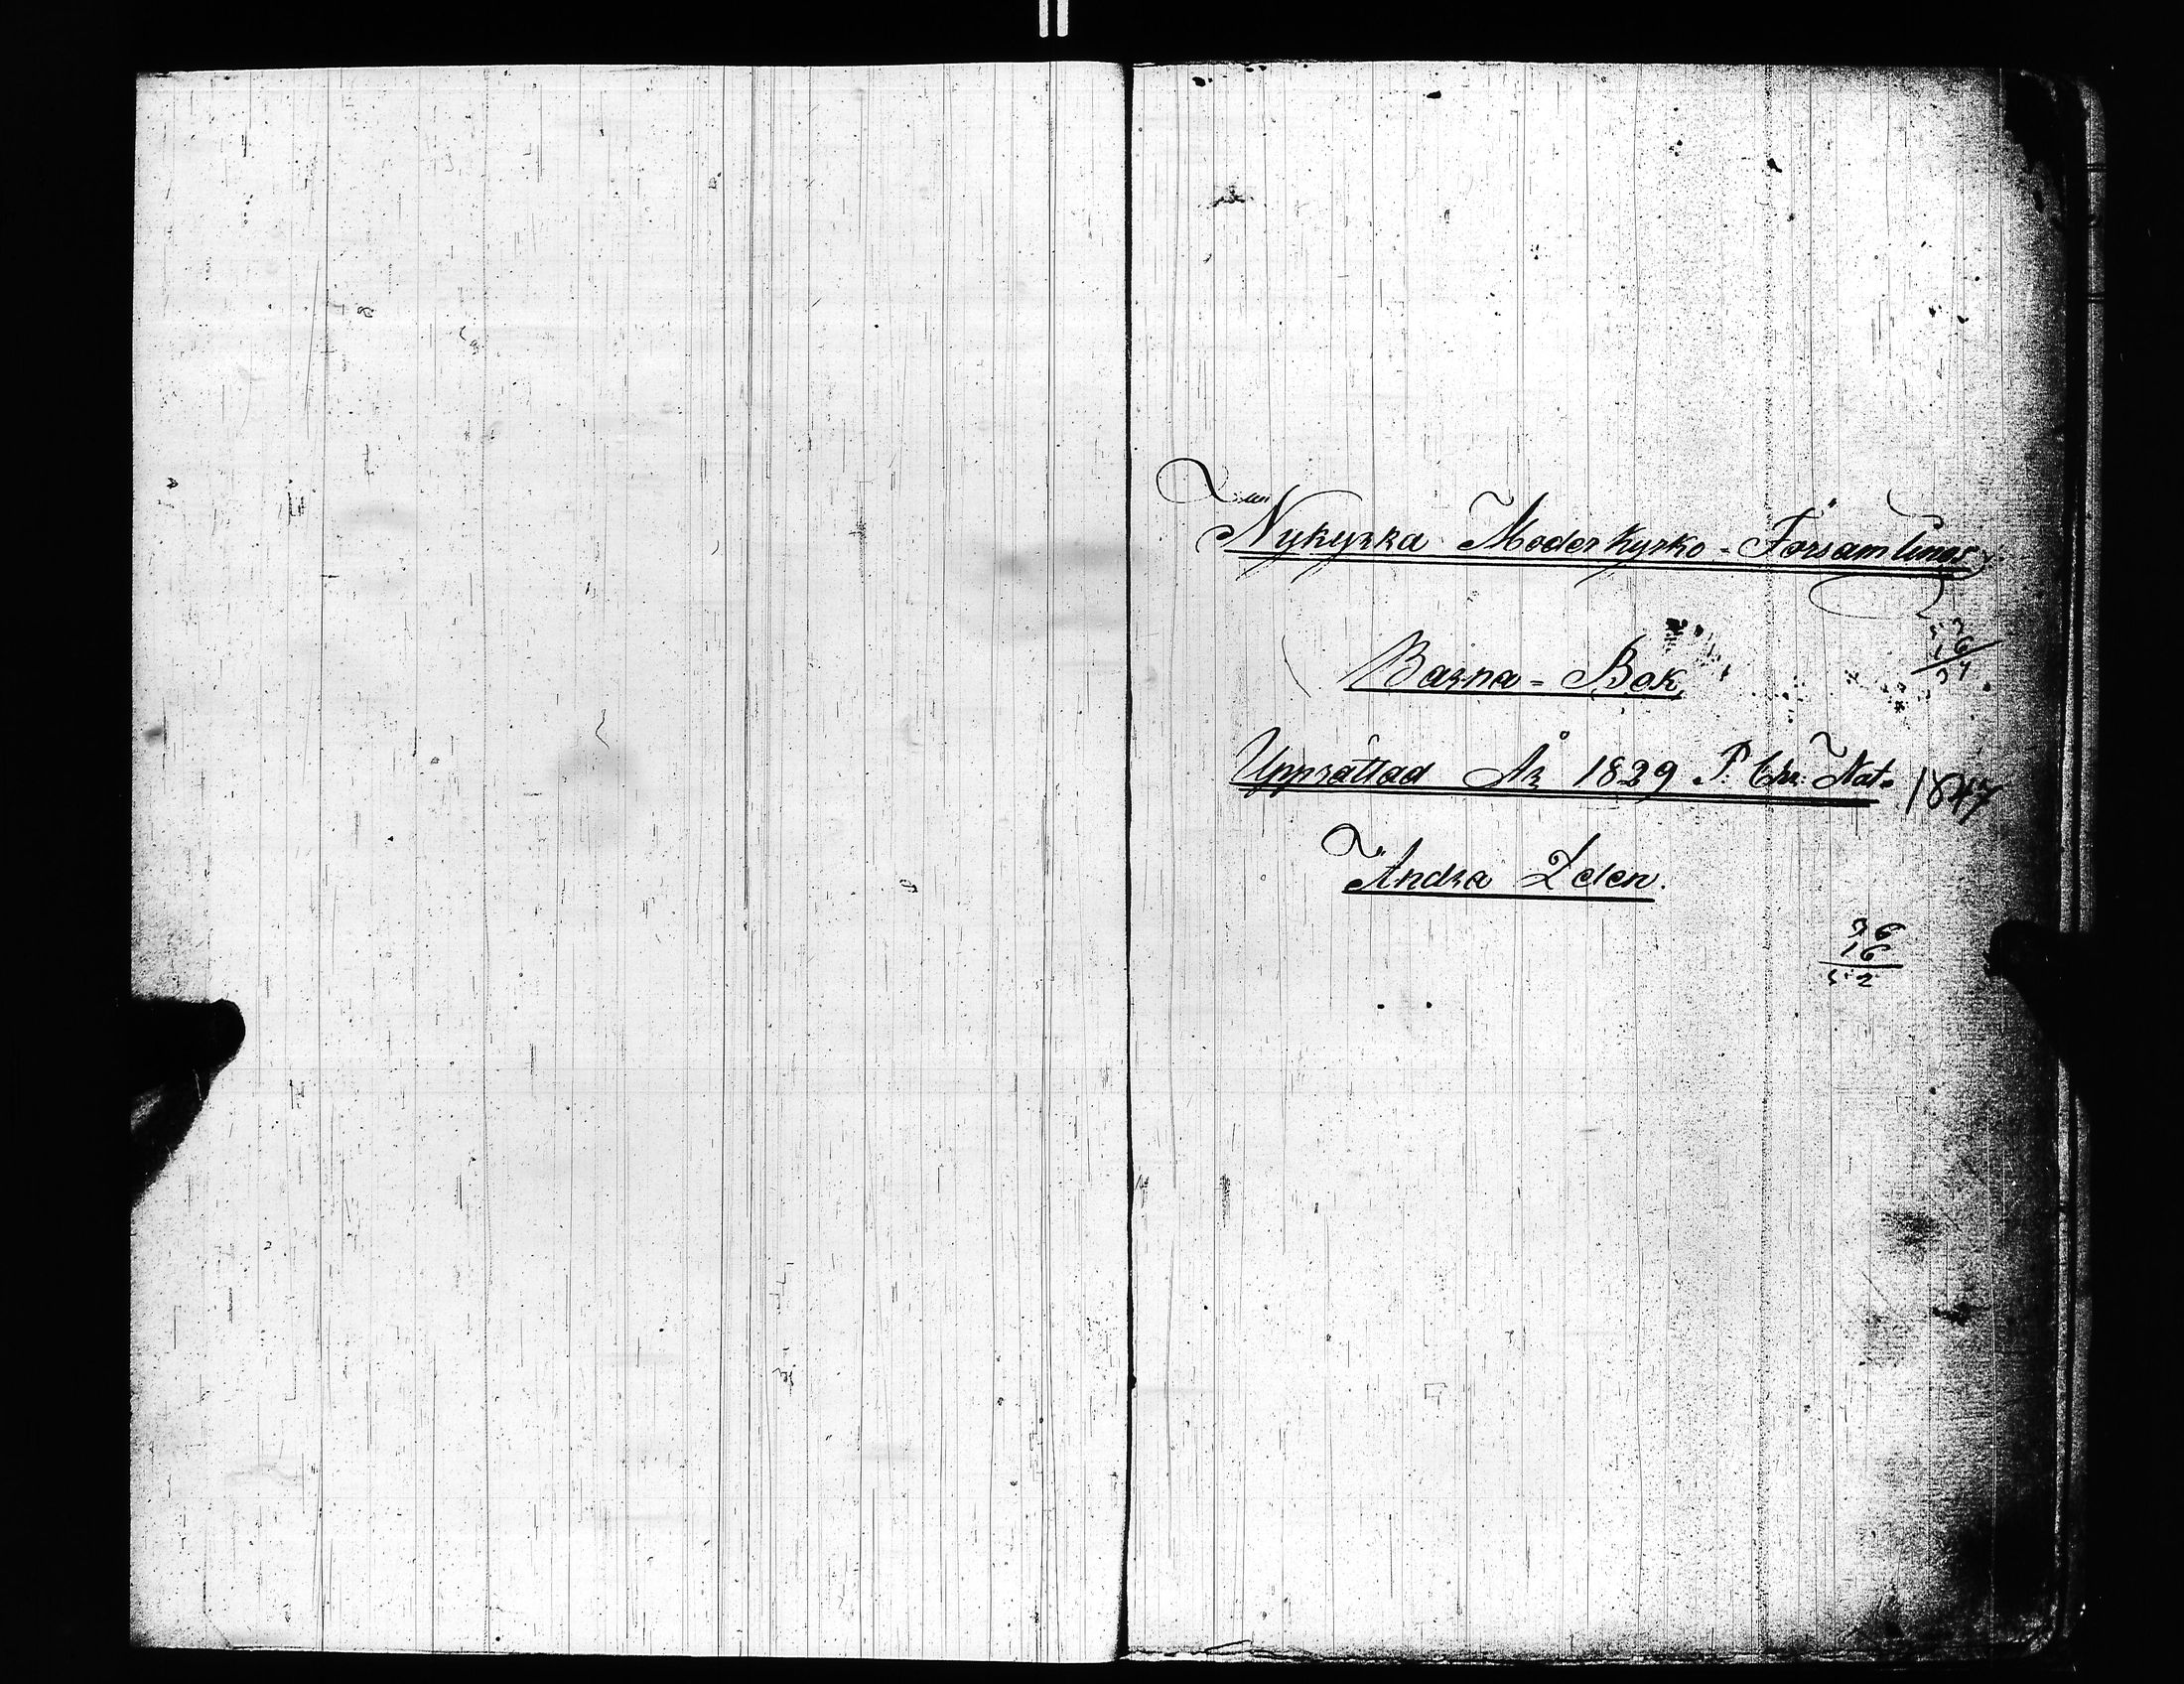 Nykyrka Moderkyrko-Församlings
Barna-Bok
Upprättad År 1829 P. Chr. Nat. 1847
Andra Delen.
36
16
52